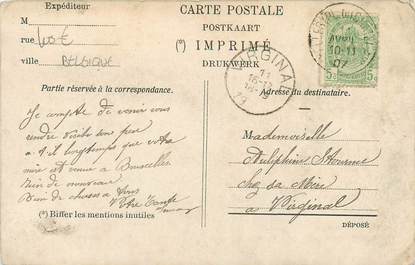 Expéditeur
M
rue
ville BELGIQUE
CARTE POSTALE
POSTKAART
(*) IMPRIMÉ
DRUKWERK
10-11
07
VIRGINAL
11
Partie réservée à la correspondance.
Adresse du destinataire.
Je compte de venir vous
rendre visite un peu
a t il longtemps que votre
mère est venue à Bruxelles
Rien de nouveau
Bien de choses à tous
Votre
(*) Biffer les mentions inutiles
Mademoiselle
chez sa Mère
à Virginal
DÉPOSÉ